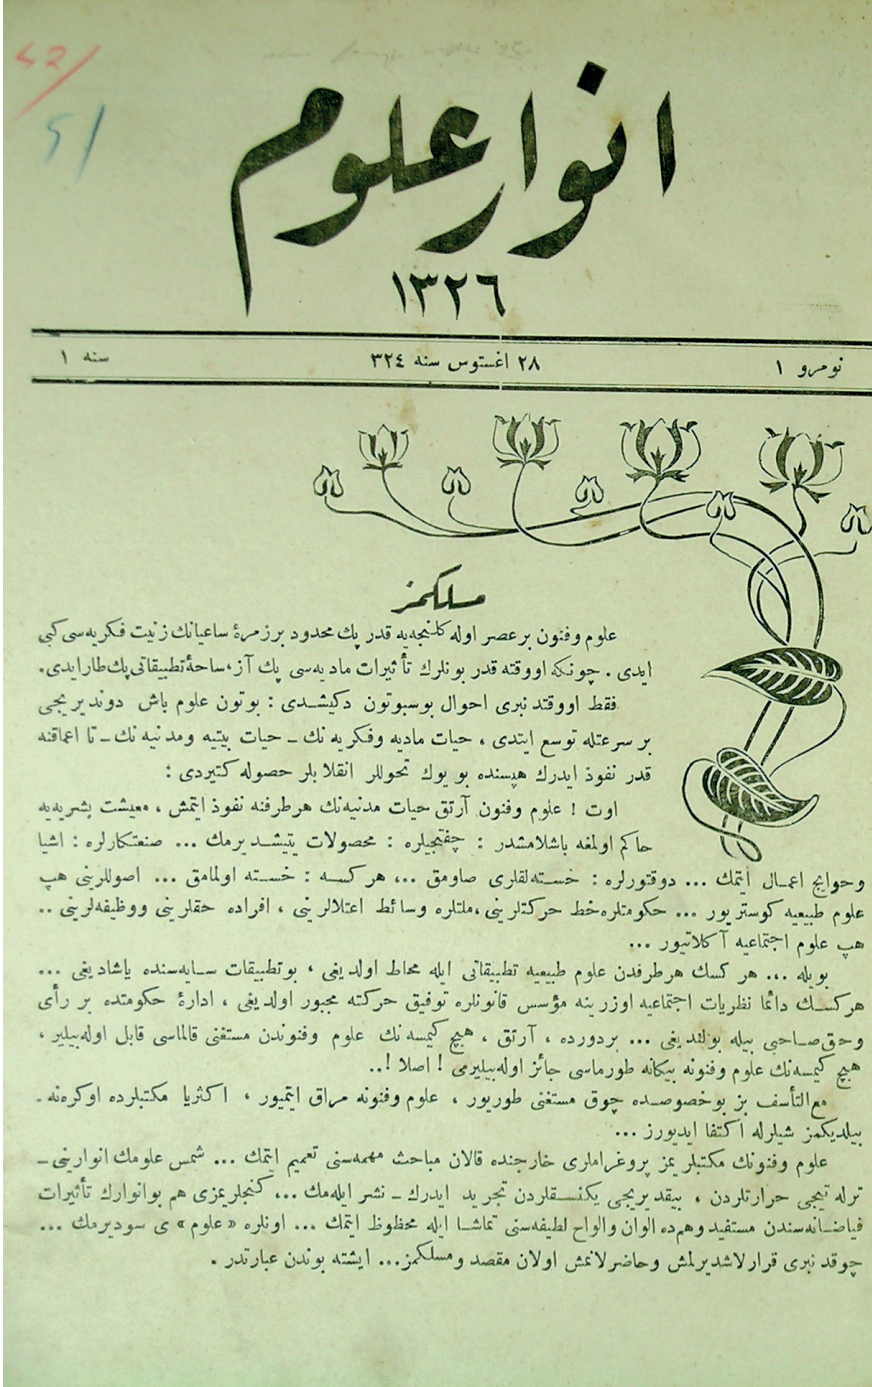 انوار علوم
١٣٢٦
نومرو ١
٢٨ اغستوس سنه ٣٢٤
سنه ١
مسلكمز
علوم وفنون بر عصر اوله كلنجه‌يه قدر پك محدود بر زمرهٔ ساعيانك زنيت فكريه‌سى كبى
ايدى . چونكه اووقته قدر بونلرك تأثيرات ماديه‌سى پك آز، ساحهٔ تطبيقاتى پك طار ايدى.
فقط اووقتد نبرى احوال بوسبوتون دكيشدى : بوتون علوم باش دونديريجى
بر سرعتله توسع ايتدى ، حيات ماديه وفكريه نك ـ حيات بيتيه ومدنيه نك ـ تا اعماقنه
قدر نفوذ ايدرك هپسنده بويوك تحوللر انقلابلر حصوله كتيردى :
اوت ! علوم وفنون آرتق حيات مدنيه‌نك هر طرفنه نفوذ ايتمش ، معيشت بشريه‌يه
حاكم اولمغه باشلامشدر : چفتجيلره : محصولات يتيشديرمك ... صنعتكارلره : اشيا
وحوايج اعمال ايتمك ... دوقتورلره : خسته‌لقلرى صاومق ... هر كسه : خسته اولمامق ... اصوللرينى هپ
علوم طبيعيه كوستريور ... حكومتلره خط حركتلرينى ،ملتلره وسائط اعتلالرينى ، افراده حقلرينى ووظيفه‌لرينى ..
هپ علوم اجتماعيه آ كلاتيور ...
بويله ... هر كسك هر طرفدن علوم طبيعيه تطبيقاتى ايله محاط اولديغى ، بو تطبيقات سايه‌سنده ياشاديغى ...
هر كسك دائما نظريات اجتماعيه اوزرينه مؤسس قانونلره توفيق حركته مجبور اولديغى ، ادارهٔ حكومتده بر رأى
وحق صاحبى بيله بولنديغى ... بر دورده ، آرتق ، هيچ كيمسه نك علوم وفنوندن مستغنى قالماسى قابل اوله‌بيلير ،
هيچ كيمسه‌نك علوم وفنونه بيكانه طورماسى جائز اوله‌بيليرمى ! اصلا !..
مع التأسف بز بوخصوصده چوق مستغنى طوريور ، علوم وفنونه مراق ايتميور ، اكثريا مكتبلرده اوكره‌نه ـ
بيلديكمز شيلرله اكتفا ايديورز ...
علوم وفنونك مكتبلريمز پروغراملرى خارجنده قالان مباحث مهمه‌سنى تعميم ايتمك ... شمس علومك انوارينى ـ
ترله تيجى حرارتلردن ، بيقديريجى يكنسقلردن تجريد ايدرك ـ نشر ايله‌مك ... كنجلريمزى هم بو انوارك تأثيرات
فياضانه‌سندن مستفيد وهم‌ده الوان والواح لطيفه‌سنى تماشا ايله محظوظ ايتمك ... اونلره «علوم» ى سوديرمك ...
چوقد نبرى قرارلاشديرلمش وحاضرلانمش اولان مقصد ومسلكمز... ايشته بوندن عبارتدر .